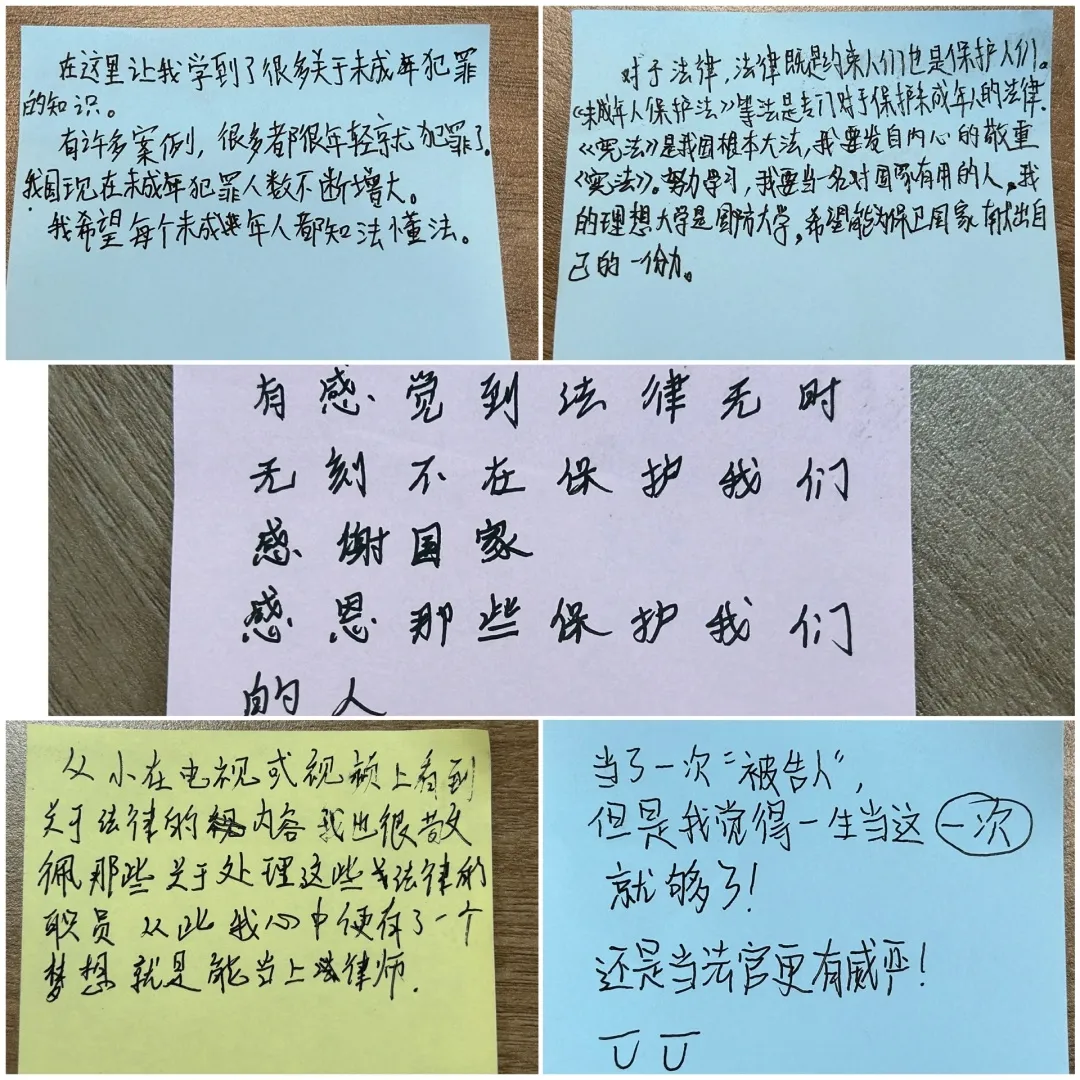 在这里让我学到了很多关于未成年犯罪
的知识。
有许多案例，很多都很年轻就犯罪了。
我国现在未成年犯罪人数不断增大。
我希望每个未成年人都知法懂法。
对于法律，法律既是约束人们也是保护人们。
《未成年人保护法》等法是专门对于保护未成年人的法律.
《宪法》是我国根本大法，我要发自内心的敬重
《宪法》。努力学习，我要当一名对国家有用的人。我
的理想大学是国防大学，希望能为保卫国家献出自
己的一份力。
有感觉到法律无时
无刻不在保护我们
感谢国家
感恩那些保护我们
的人
从小在电视或视频上看到
关于法律的内容 我也很敬
佩那些关于处理这些法律的
职员 从此我心中便有了一个
梦想 就是能当上律师.
当了一次“被告人”，
但是我觉得一生当这一次
就够了！
还是当法官更有威严！